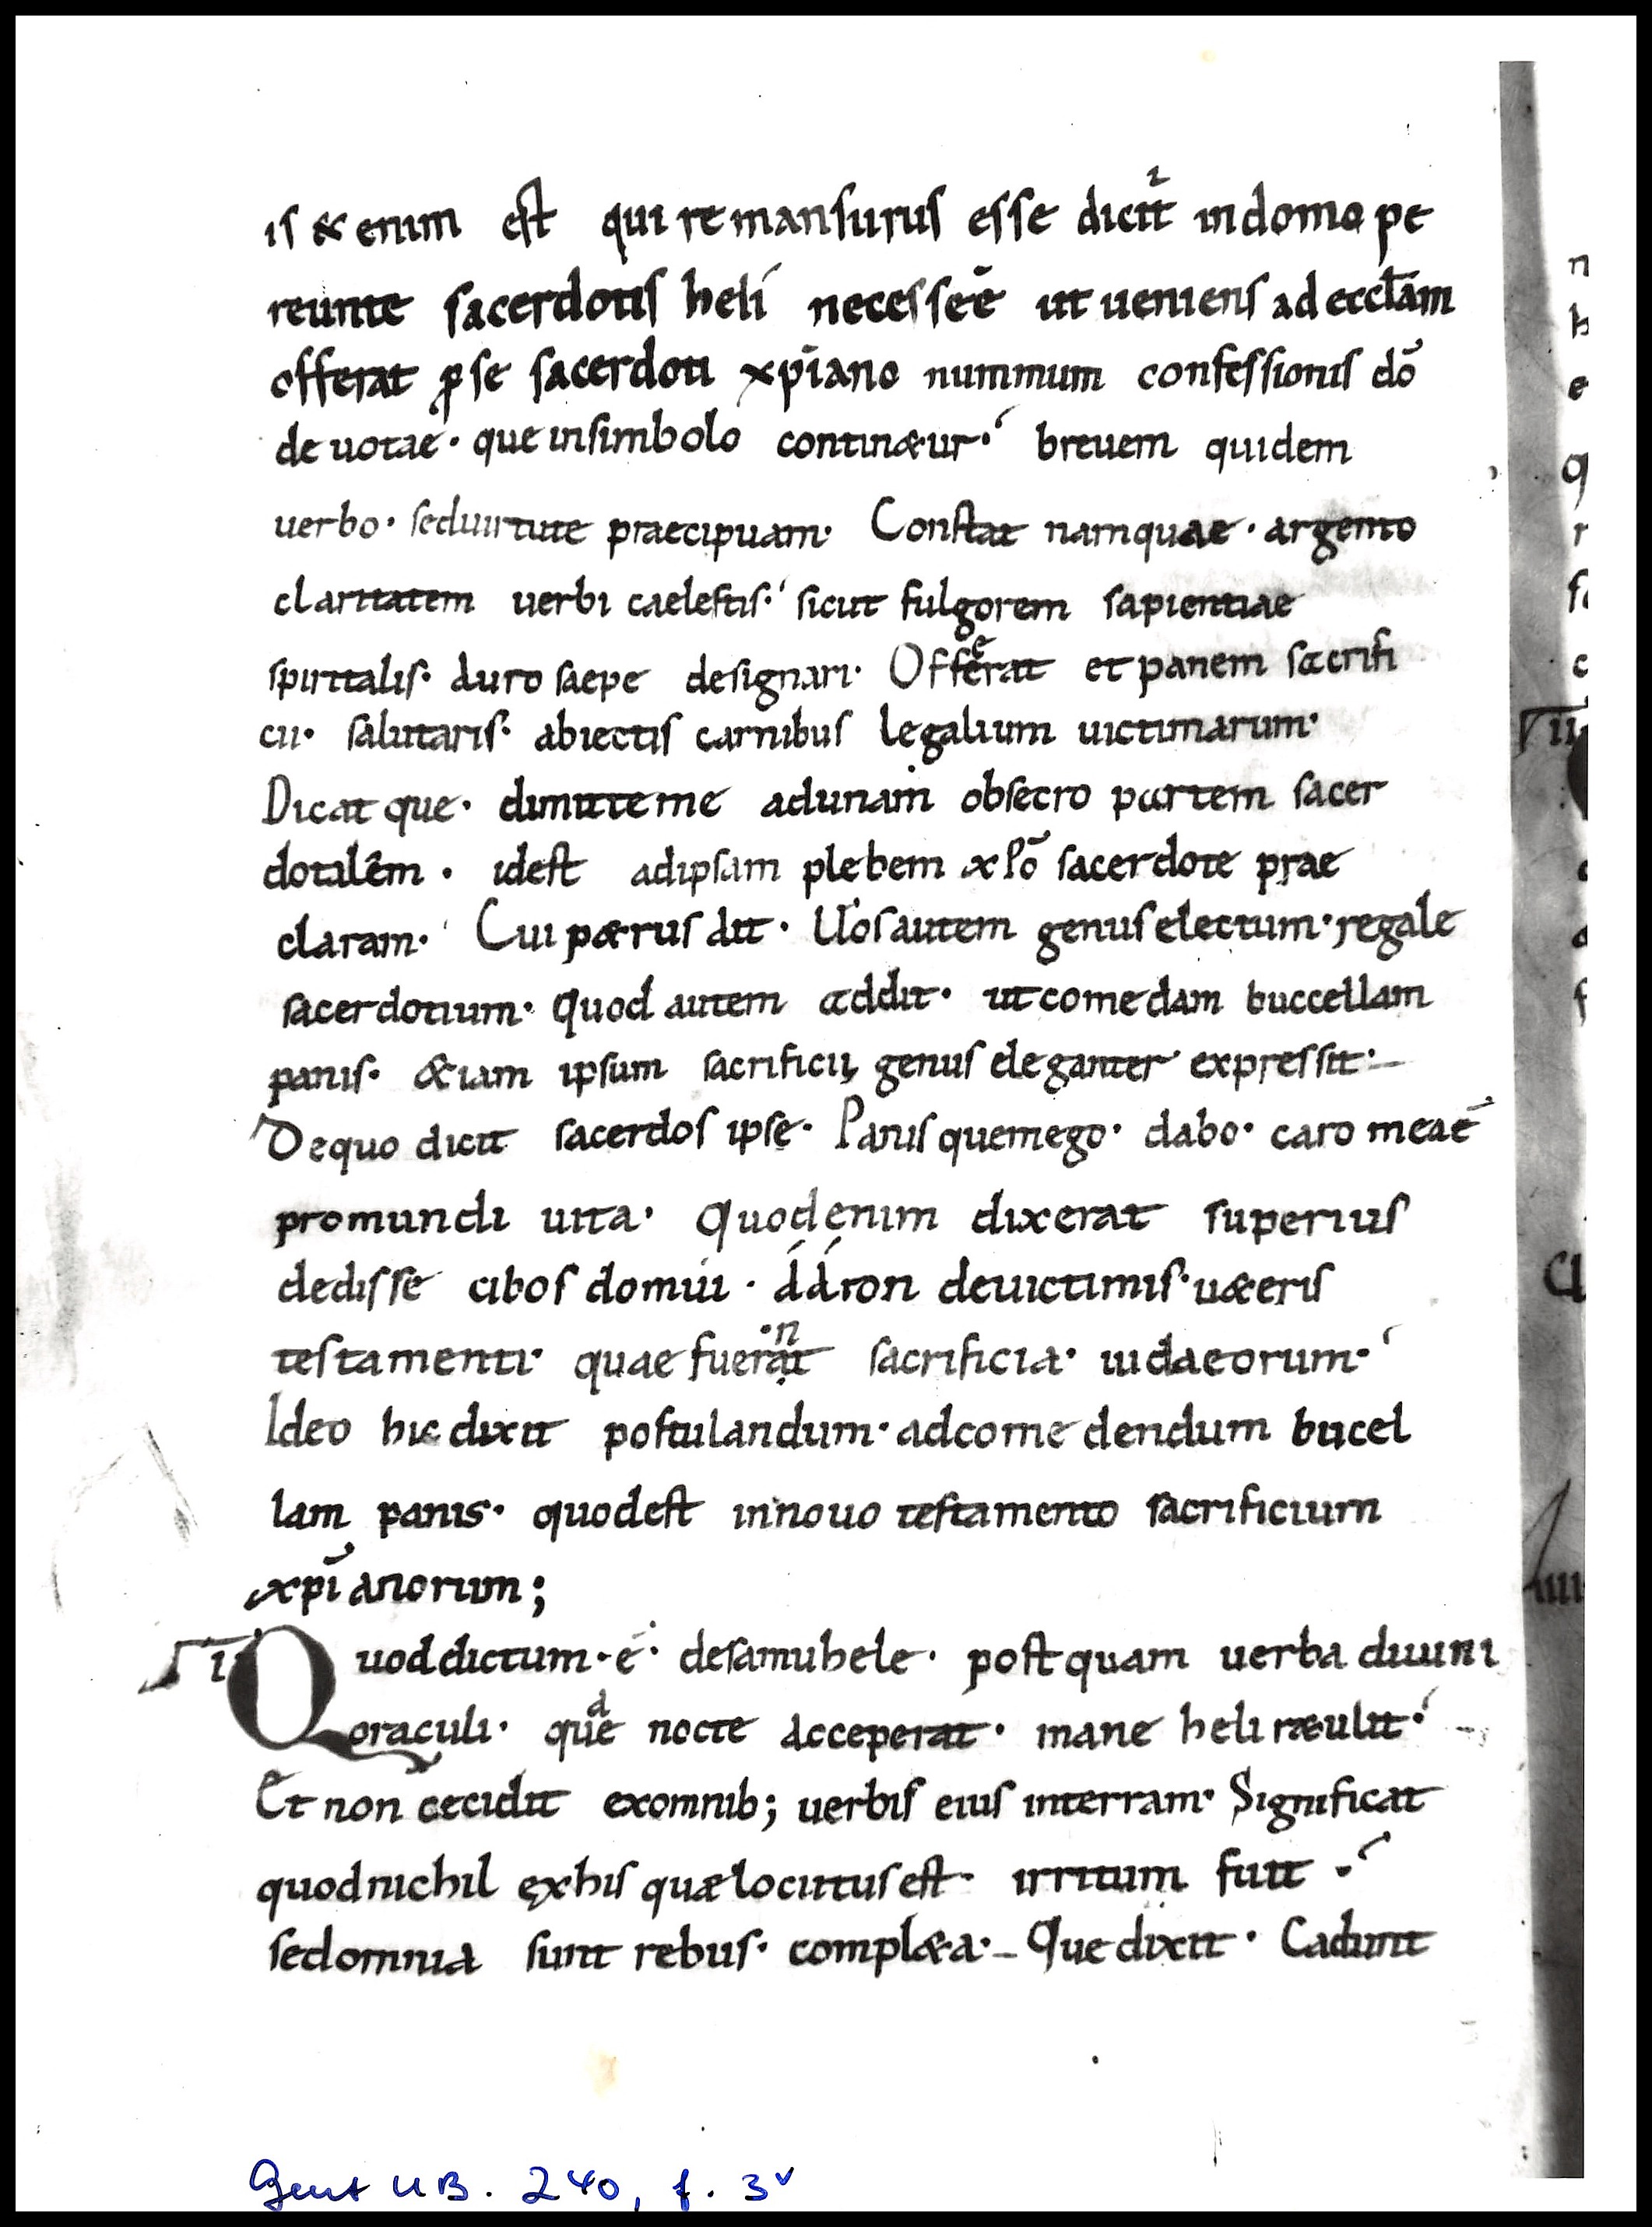 is & enim est qui remansurus esse dicit̃ in domo pe
reunte sacerdotis heli necesseē ut ueniens ad eccl̄am
offerat ꝓ se sacerdoti xp̄iano nummum confessionis dō
deuotae · que in simbolo contin&ur ·́ breuem quidem
uerbo · sed uirtute praecipuam · Constat namquae · argento
claritatem uerbi caelestis ·́ sicut fulgorem sapientiae
spiritalis · auro saepe designari · Offerat et panem sacrifi
cii · salutaris · abiectis carnibus legalium uictimarum ·
Dicatque · dimitte me ad unam obsecro partem sacer
dotalêm · id est ad ipsam plebem xp̄o sacerdote prae
claram · Cui p&rus ait · Uos autem genus electum · regale
sacerdotium · Quod autem addit · ut comedam buccellam
panis · &iam ipsum sacrificii genus eleganter expressit ·
De quo dicit sacerdos ipse · Panis quem ego · dabo · caro meaē
pro mundi uita · Quod enim dixerat superius
dedisse cibos domui · ááron de uictimis · u&eris
testamenti · quae fuerant sacrificia · iudaeorum ·́
Ideo hic dixit postulandum · ad comedendum bucel
lam panis · quod est in nouo testamento sacrificium
xp̄ianorum ;
ii Quod dictum · ē · de samuhele · postquam uerba diuini
oraculi · quae nocte acceperat · mane heli r&ulit ·́
Et non cecidit ex omnib; uerbis eius in terram · Significat
quod nichil ex his quæ locutus est · irritum fuit ·́
sed omnia sunt rebus · compl&a · Que dixit · Cadunt
Gent UB. 240, f. 3v